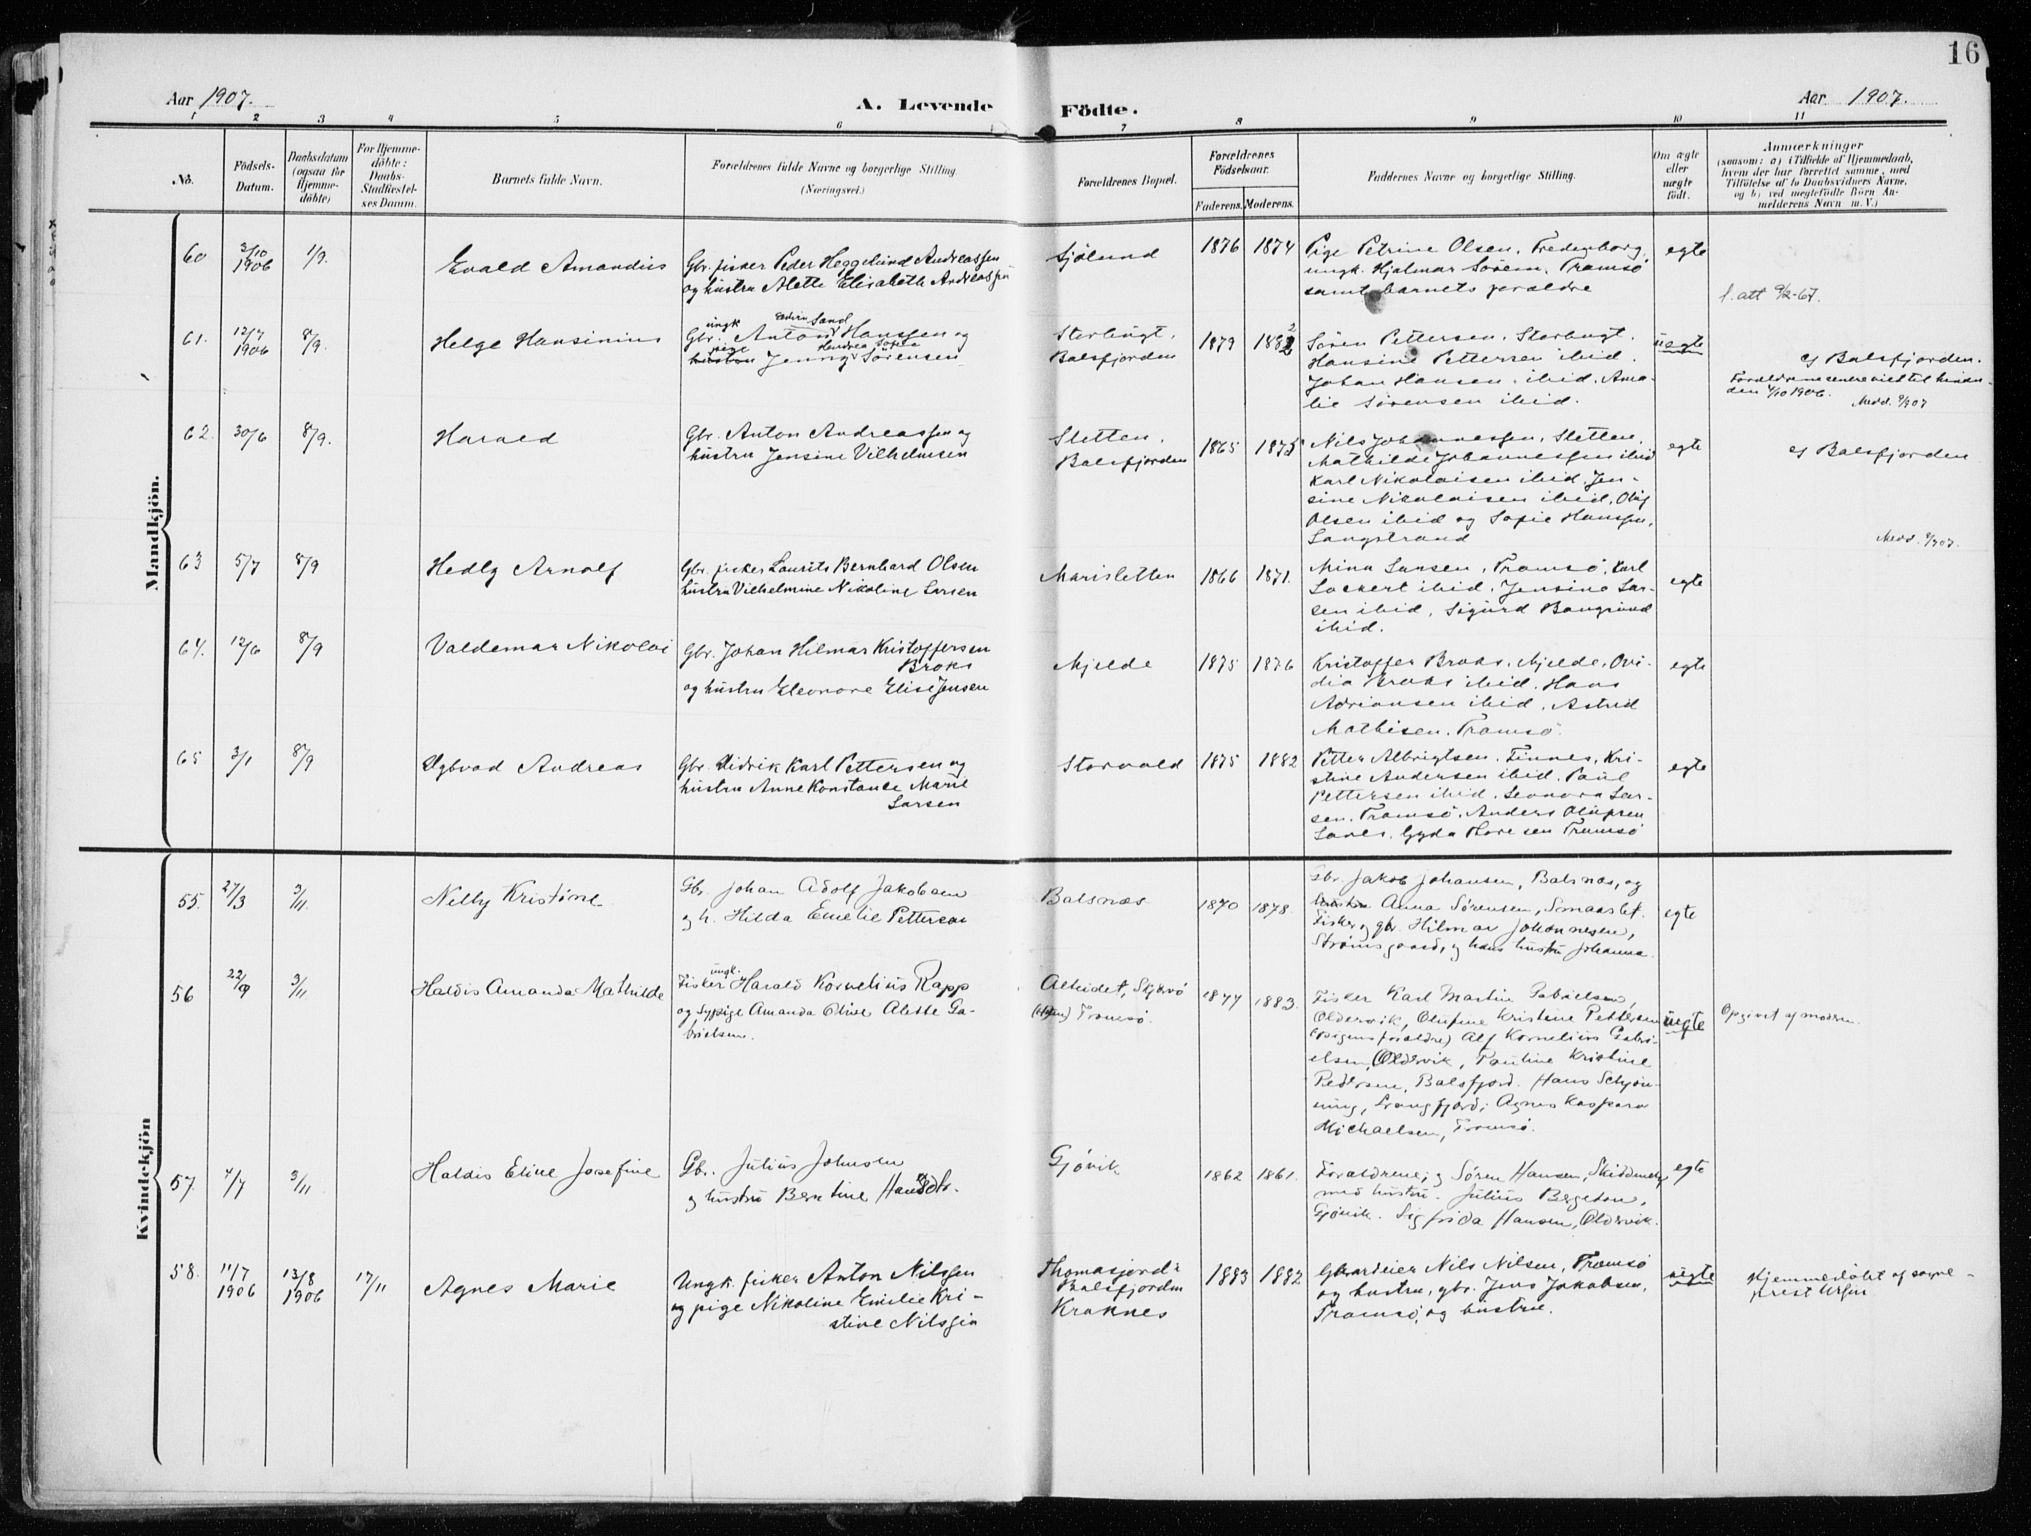 16
Aar 1907.
A. Levende Födte.
Aar 1907.
1 2 3 4 5 6 7 8 9 10 11
No.
Födsels-
Datum.
Daabsdatum
(ogsaa for
Hjemme-
döbte)
For Hjemme-
döbte:
Daabs-
Stadfæstel-
ses Datum.
Barnets fulde Navn.
Forældrenes fulde Navne og borgerlige Stilling
(Næringsvei.)
Forældrenes Bopæl.
Forældrenes
Födselsaar.
Faderens. Moderens.
Faddernes Navne og borgerlige Stilling.
Om ægte
eller
uægte
födt.
Anmærkninger
(saasom: a) i Tilfælde af Hjemmedaab,
hvem der har forrettet samme, med
Tilföielse af to Daabsvidners Navne,
og b) ved uægtefödte Börn An-
melderens Navn m. V.)
Mandkjön.
60 3/10 1906 1/9. Evald Amandus
Gbr. fisker Peder Heggelund Andreassen
og hustru Alette Elisabeth Andreassen
Sjølund 1876 1874
Pige Petrine Olsen, Fredenborg,
ungk. Hjalmar Sørem, Tromsø
samt barnets forældre
egte
f. att 9/2-67.
61. 12/7 1906 8/9. Helge Hansinius
ungk Edvin Sand
Gbr. Anton Hanssen og
pige Hendrea Sofie
hustru Jenny Sørensen
Storbugt,
Balsfjorden
1879 1882
Søren Pettersen, Storbugt.
Hansine Pettersen ibid.
Johan Hansen, ibid. Ama-
lie Sørensen ibid.
uegte
cf Balsfjorden.
Forældrene senere viet til hinan-
den 4/10 1906.
Medd. 9/907
62. 30/6 8/9. Harald
Gbr. Anton Andreassen og
hustru Jensine Vilhelmsen
Sletten,
Balsfjorden
1865 1875
Nils Johannessen, Sletten,
Mathilde Johannessen ibid
Karl Nikolaisen ibid, Jen-
sine Nikolaisen ibid, Oluf
Olsen ibid og Sofie Hanssen,
Langstrand
egte
cf Balsfjorden
Medd. 9/907.
63 5/7 8/9 Hedly Arnolf
Gbr. fisker Laurits Bernhard Olsen
hustru Vilhelmine Nikoline Larsen
Marisletten 1866 1871.
Mina Larsen, Tromsø, Karl
Lockert ibid, Jensine Lar-
sen ibid, Sigurd Bangsund
ibid.
egte
64. 12/6 8/9 Valdemar Nikolai
Gbr. Johan Hilmar Kristoffersen
Broks
og hustru Eleonore Elise Jensen
Mjelde 1875 1876
Kristoffer Broks, Mjelde, Ovi-
dia Broks ibid. Hans
Adriansen ibid, Astrid
Mathisen, Tromsø.
egte
65 3/1 8/9 Dybvad Andreas
Gbr. Didrik Karl Pettersen og
hustru Anne Konstanse Marie
Larsen
Storvold 1875 1882
Petter Albrigtsen, Finnes, Kri-
stine Andersen ibid. Paul
Pettersen ibid. Leonora Lar-
sen, Tromsø, Anders
Gyda Thoresen Tromsø
egte
Kvindekjön
55. 27/3 3/11. Nelly Kristine
Gbr. Johan Adolf Jakobsen
og h. Hilda Emelie Pettersen
Balsnæs 1870 1878.
Gbr. Jakob Johansen, Balsnæs, og
hustru Anna Sørensen, Smaaslet.
Fisker og gbr. Hilmar Johannesen,
Strømsgaard, og hans hustru Johanna.
egte
56 22/9 3/11 Haldis Amanda Mathilde
ungk.
Fisker Harald Kornelius Rapp
og sypige Amanda Oline Alette Ga-
brielsen.
Alteidet, Skjærvø
Tromsø.
1877 1883.
Fisker Karl Martin Gabrielsen,
Oldervik, Olufine Kristine Pettersen
(pigens forældre) Alf Kornelius Gabri-
elsen, Oldervik, Pauline Kristine
Pedersen, Balsfjord. Hans Schjøn-
ning, Grangfjord; Agnes Kaspara
Michaelsen, Tromsø.
uegte
Opgivet af moderen.
57 7/7 3/11 Haldis Eline Josefine
Gbr. Julius Johnsen
og hustru Berntine Hansdtr.
Gjøvik 1862 1861.
Forældrene; og Søren Hansen,
med hustru. Julius Bergeton,
Gjøvik. Sigfrida Hansen, Oldervik.
egte
58. 11/7 1906 13/8 1906 17/11 Agnes Marie
Ungk. fisker Anton Nilssen
og pige Nikoline Emilie Kri-
stine Nilssen
Thomasjord i
Balsfjorden
Kraknes
1883 1882
Gbr Nils Nilsen, Tromsø
og hustru, gbr. Jens Jakobsen,
Tromsø, og hustru.
uegte
Hjemmedøbt af sogne-
prest